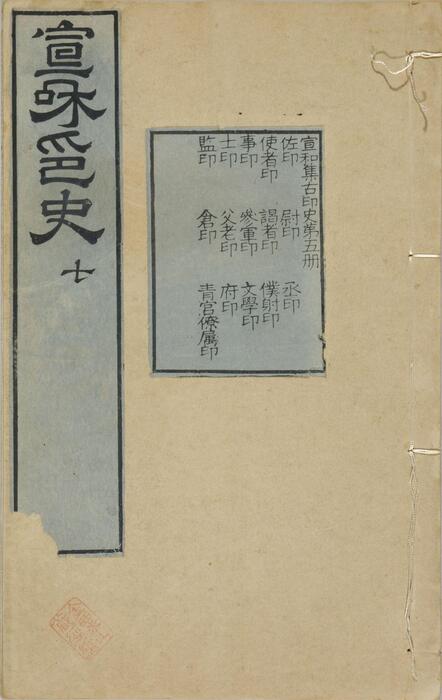 宣和印史
七
宣和集古印史第五册
佐印 尉印 丞印
使者印 謁者印 僕射印
事印 參軍印 文學印
士印 父老印 府印
監印 倉印 青宮僚屬印